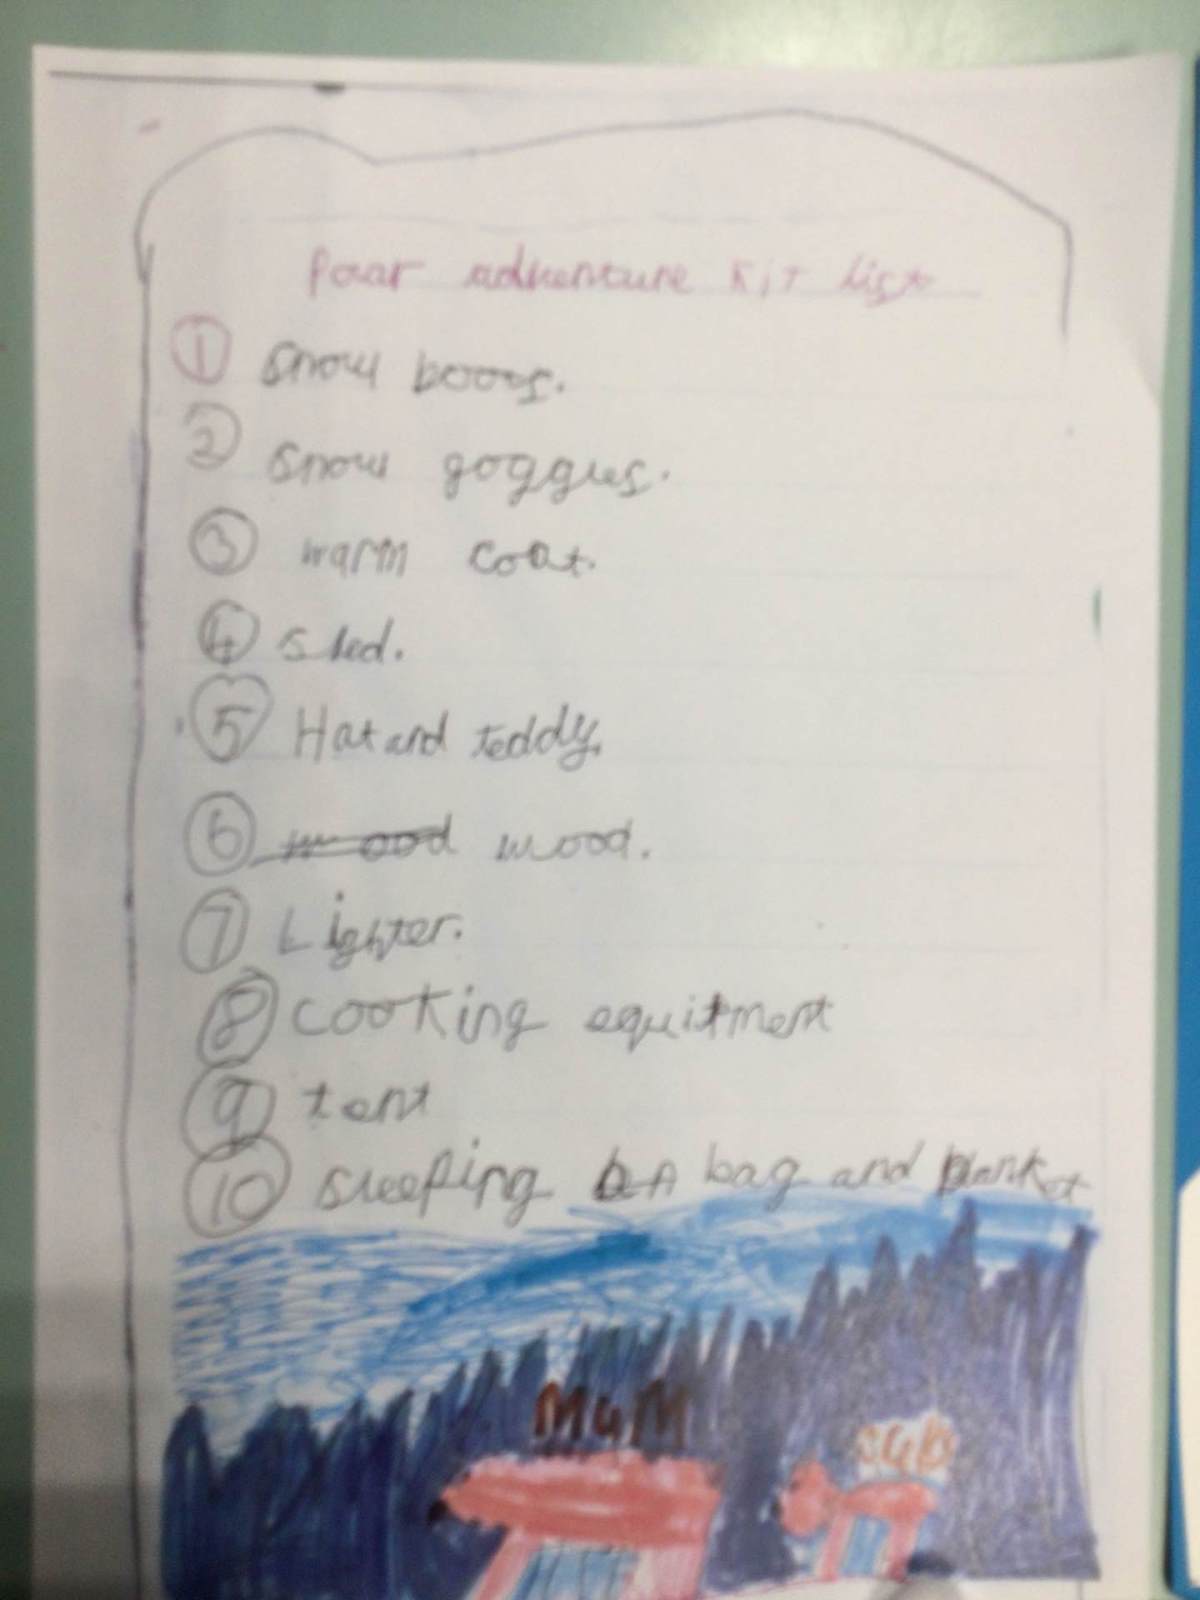 Polar adventure Kit list
1 Snow boots.
2 Snow goggles.
3 warm coat.
4 sled.
5 Hat and teddy.
6 wood wood.
7 Lighter.
8 cooking equitment
9 tent
10 sleeping bag and blanket
MuM
cub